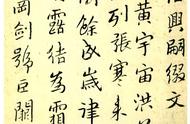 興嗣綴文
黃宇宙洪
列張寒來
閏餘成歲律
露結為霜
岡劍號巨闕